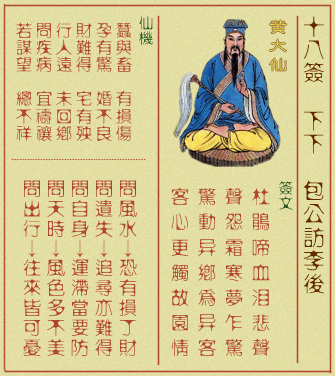 十八簽　下下　包公訪李後
黃大仙
簽文
杜鵑啼血淚悲聲
聲怨霜寒夢乍驚
驚動异鄉爲异客
客心更觸故園情
仙機
蠶與畜　有損傷
孕有驚　婚不良
財難得　宅有殃
行人遠　未回鄉
問疾病　宜禱禳
若謀望　總不祥
問風水→恐有損了財
問遺失→追尋亦難得
問自身→運滯當要防
問天時→風色多不美
問出行→往來皆可憂